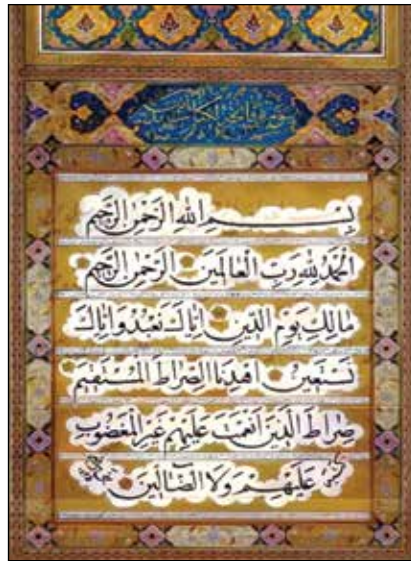 سورة فاتحة الكتاب
بسم الله الرحمن الرحيم
الحمد لله رب العالمين الرحمن الرحيم
مالك يوم الدين اياك نعبد واياك
نستعين اهدنا الصراط المستقيم
صراط الذين انعمت عليهم غير المغضوب
عليهم ولا الضالين